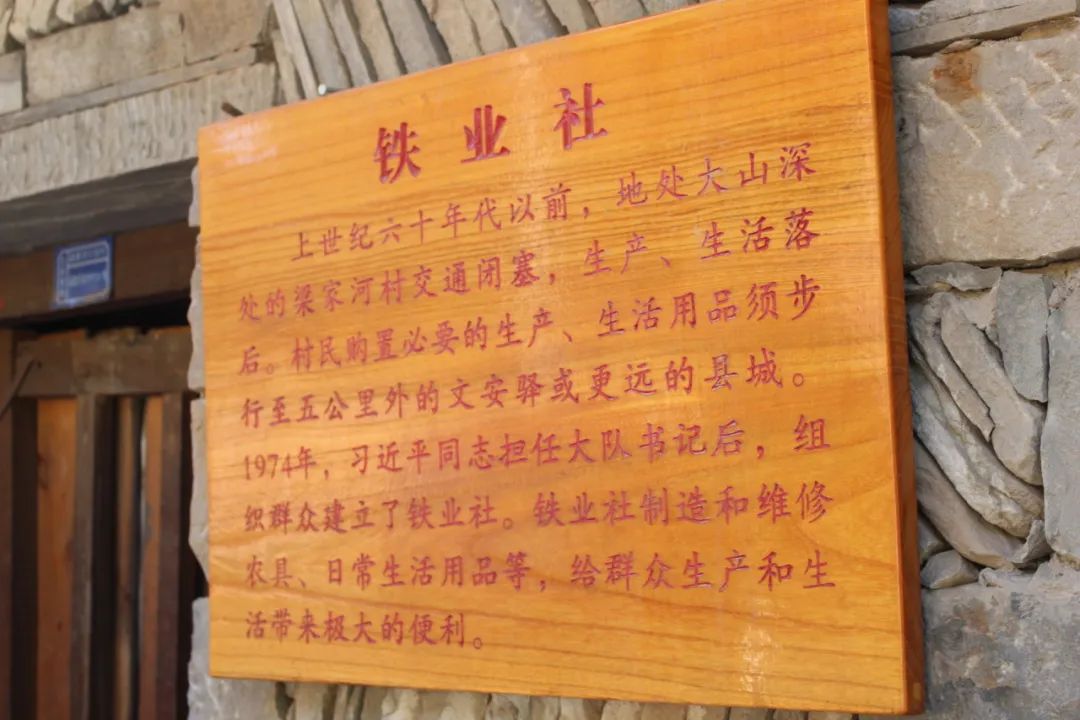 铁业社
上世纪六十年代以前，地处大山深
处的梁家河村交通闭塞，生产、生活落
后。村民购置必要的生产、生活用品须步
行至五公里外的文安驿或更远的县城。
1974年，习近平同志担任大队书记后，组
织群众建立了铁业社。铁业社制造和维修
农具、日常生活用品等，给群众生产和生
活带来极大的便利。